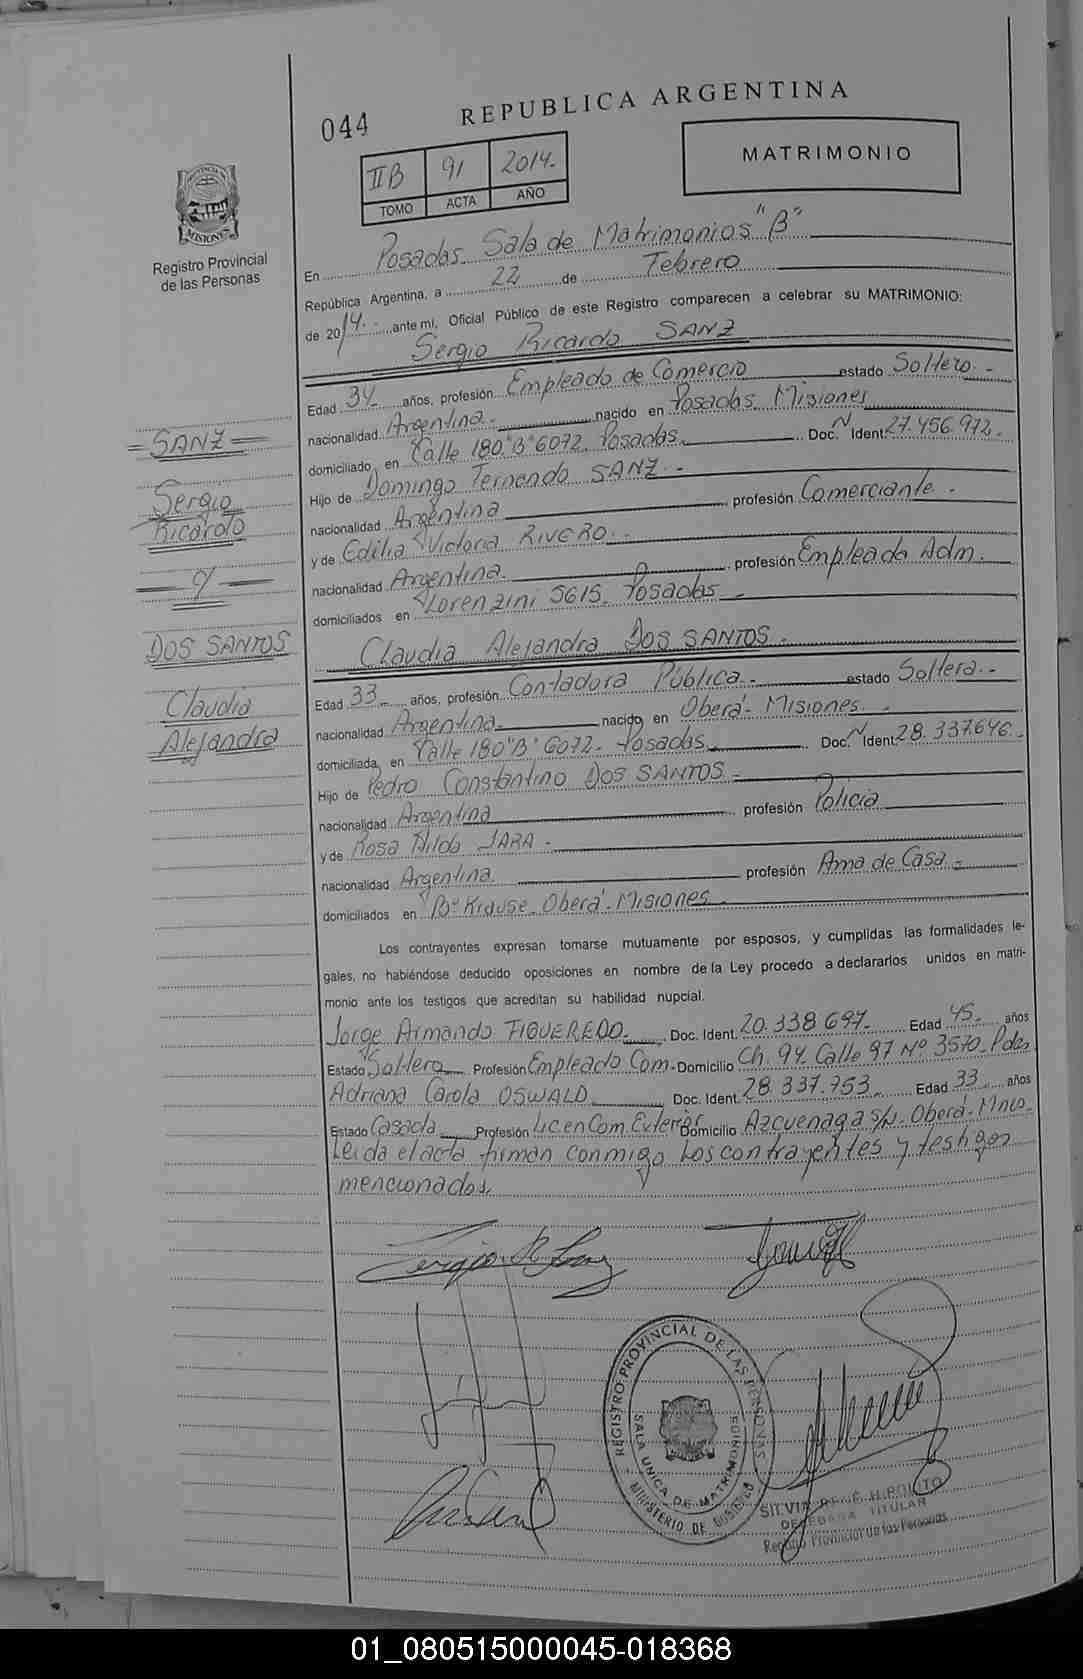 044
REPUBLICA ARGENTINA
MATRIMONIO
IIB 91 2014.-
TOMO ACTA AÑO
PROVINCIA DE
MISIONES
Registro Provincial
de las Personas
En Posadas. Sala de Matrimonios "B"
República Argentina, a 22 de Febrero
de 2014.- ante mí, Oficial Público de este Registro comparecen a celebrar su MATRIMONIO:
Sergio Ricardo SANZ
Edad 34 años, profesión Empleado de Comercio estado Soltero.-
nacionalidad Argentina.- nacido en Posadas Misiones
domiciliado en Calle 180 "B" 6072. Posadas. Doc. N Ident. 27.456.972.-
Hijo de Domingo Fernando SANZ.-
nacionalidad Argentina profesión Comerciante.-
y de Edilia Victoria RIVERO.-
nacionalidad Argentina. profesión Empleada Adm.
domiciliados en Lorenzini 5615. Posadas.-
Claudia Alejandra DOS SANTOS.-
Edad 33 años, profesión Contadora Pública.- estado Soltera.-
nacionalidad Argentina.- nacido en Oberá - Misiones.-
domiciliada en Calle 180 "B" 6072.- Posadas. Doc. N Ident. 28.337.646.-
Hijo de Pedro Constantino DOS SANTOS.-
nacionalidad Argentina profesión Policía
y de Rosa Hilda JARA.-
nacionalidad Argentina. profesión Ama de Casa.-
domiciliados en Bº Krause. Oberá - Misiones.
=SANZ=
Sergio
Ricardo
= y =
DOS SANTOS
Claudia
Alejandra
Los contrayentes expresan tomarse mutuamente por esposos, y cumplidas las formalidades le-
gales, no habiéndose deducido oposiciones en nombre de la Ley procedo a declararlos unidos en matri-
monio ante los testigos que acreditan su habilidad nupcial.
Jorge Armando FIGUEREDO. Doc. Ident. 20.338.697.- Edad 45.- años
Estado Soltero Profesión Empleado Com. Domicilio Ch. 94. Calle 97 Nº 3570. Pdas
Adriana Carola OSWALD Doc. Ident. 28.337.753. Edad 33 años
Estado Casada Profesión Lic. en Com. Exterior Domicilio Azcuenaga s/n. Oberá. Mnes.
Leida el acta firman conmigo los contrayentes y testigos
mencionados.
Sergio R Sanz
REGISTRO PROVINCIAL DE LAS PERSONAS
SALA UNICA DE MATRIMONIOS
MINISTERIO DE GOBIERNO
SILVIA RENÉ HIPOLITO
DELEGADA TITULAR
Registro Provincial de las Personas
01_080515000045-018368